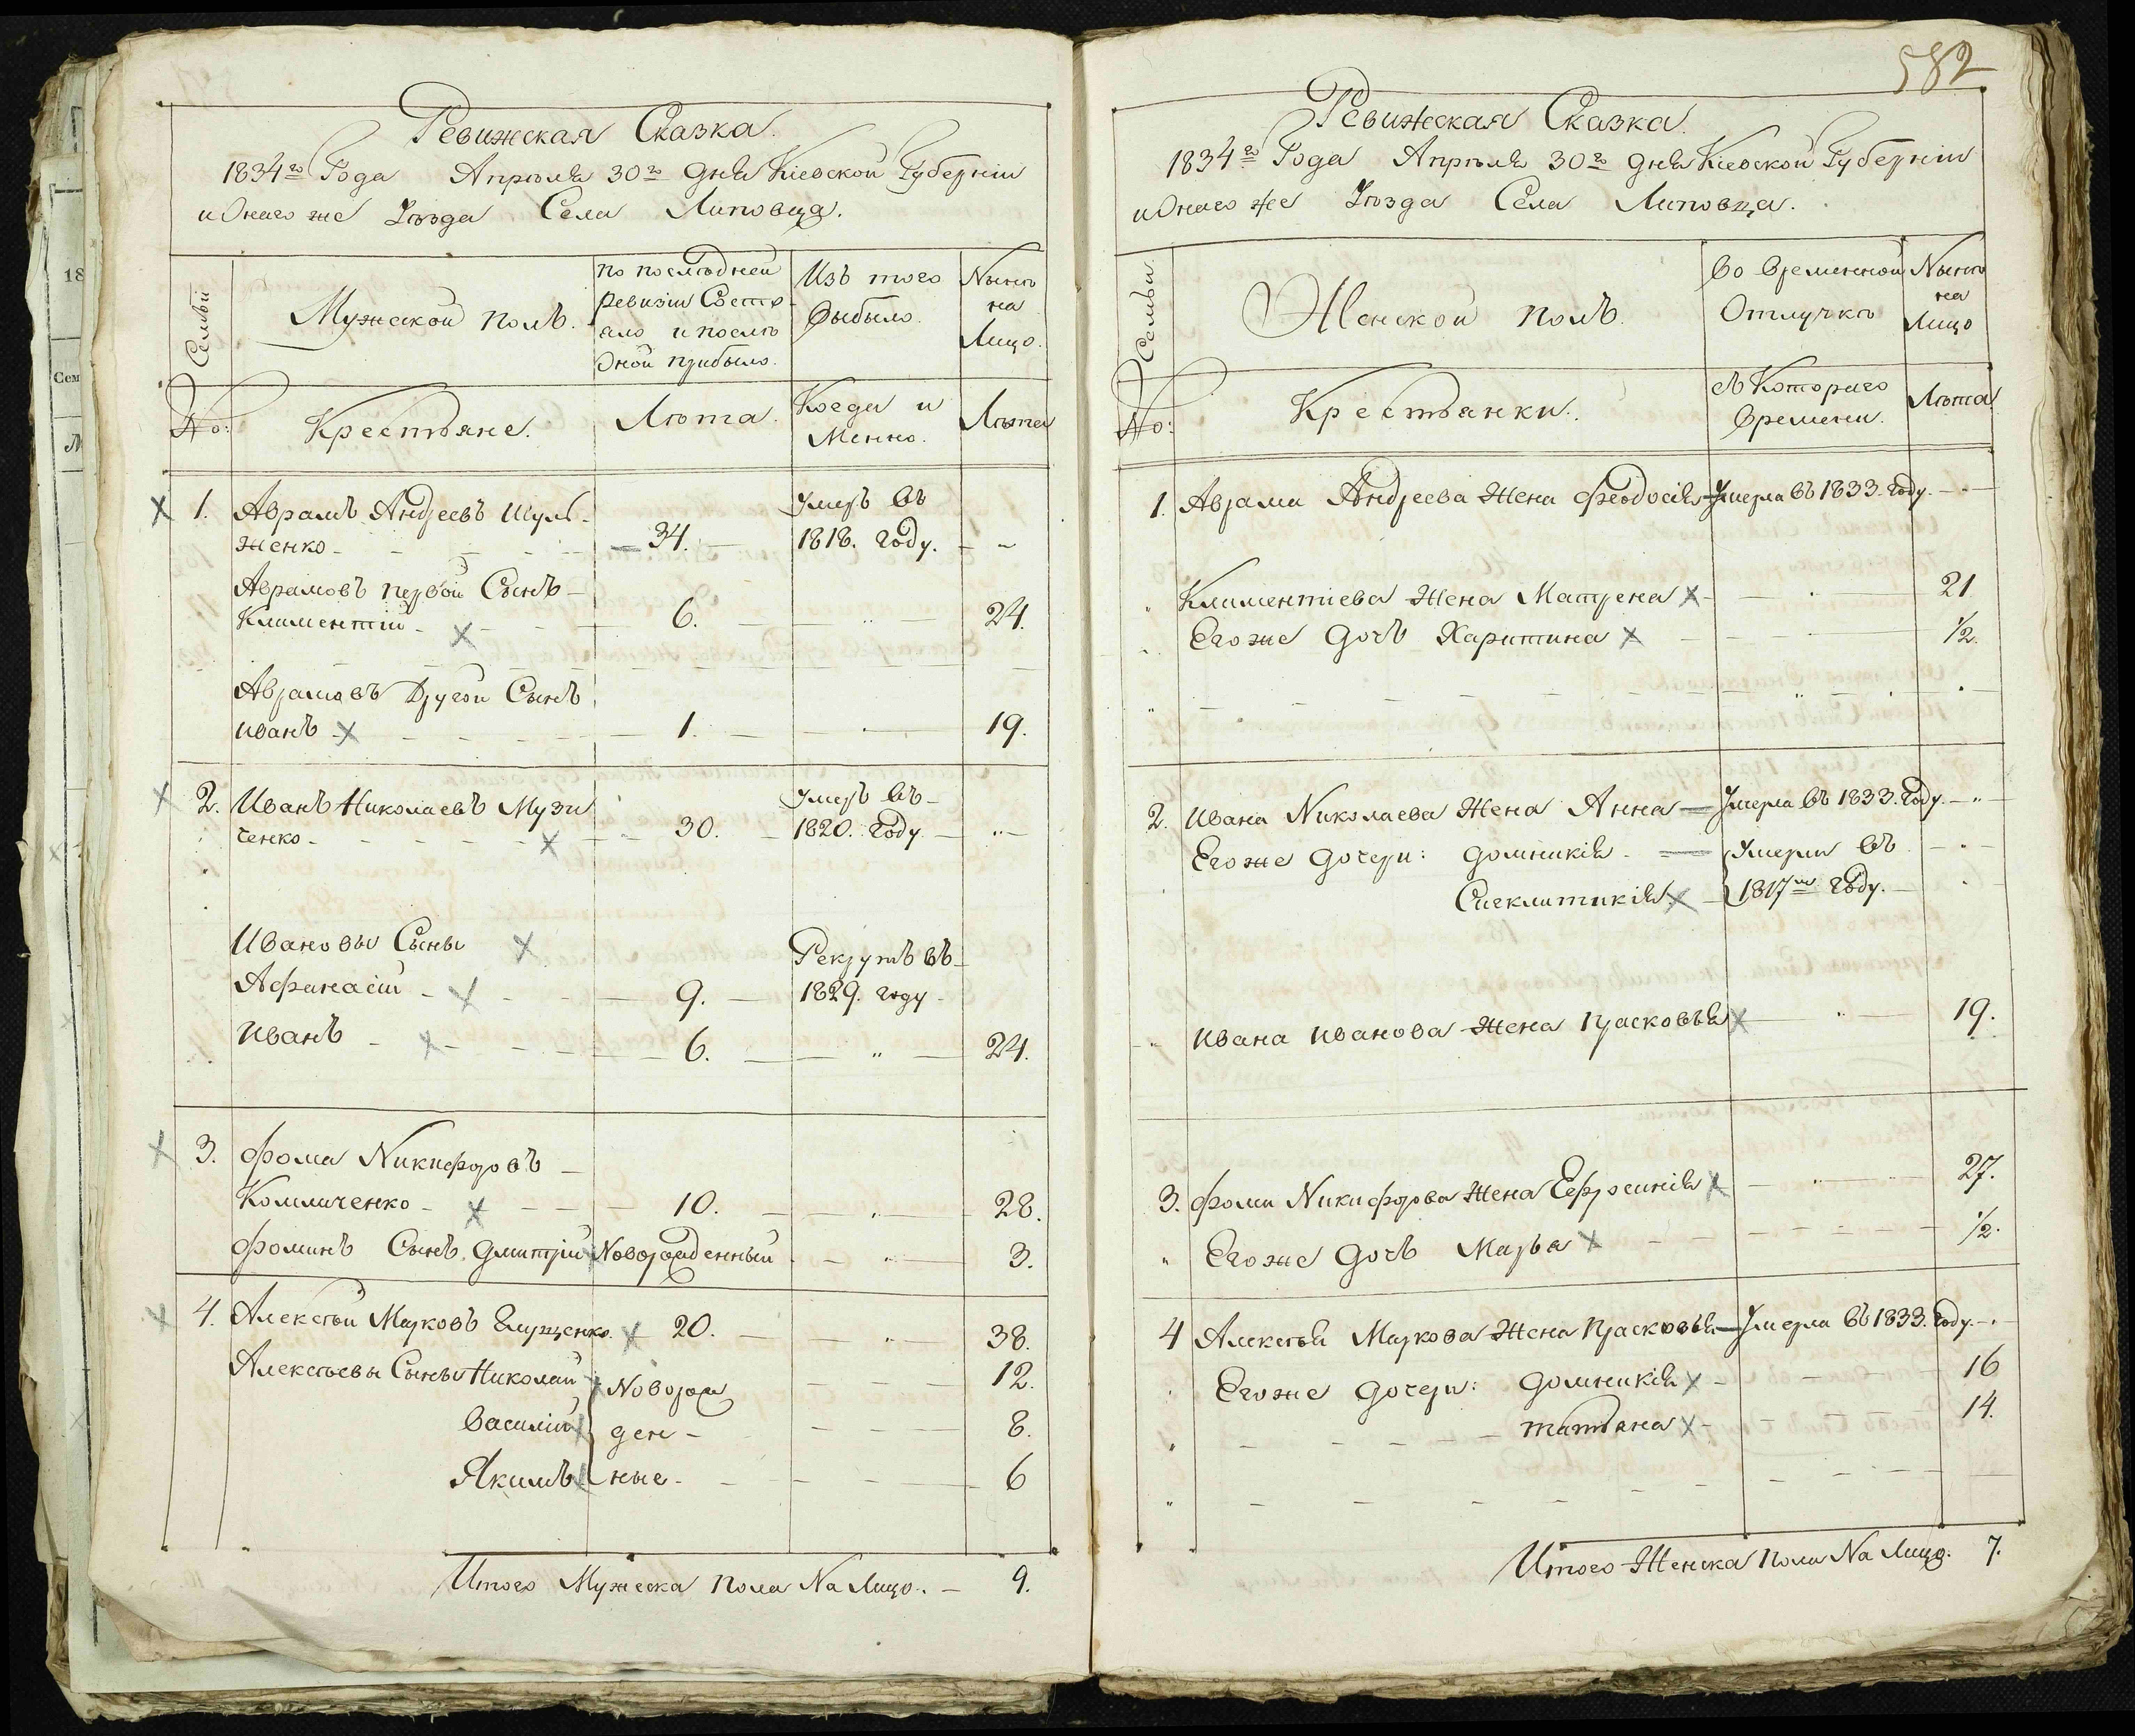 Ревижская Сказка.
1834го Года Апреля 30го дня Кіевской Губерніи
и Онаго же Уезда Села Липовца.
Семьи
Мужеской полъ.
по последней
ревизіи Состо
яло и после
Оной прибыло.
Изъ того
Выбыло.
Ныне
на
Лицо.
No:
Крестьяне.
Лета.
Когда и
Менно.
Лета
1. Аврамъ Андреевъ Шуль-
женко - 34. Умеръ въ 1818. году. - -
Аврамовъ первой Сынъ -
Климентий - 6. - " - 24.
Аврамовъ Другой Сынъ
иванъ - 1. - 19.
2. Иванъ Николаевъ Музи
ченко - 30. - Умеръ въ - 1820. году - " -
Ивановы Сыны
Афанасій - 9. - Рекрутъ въ - 1829. году -
иванъ - 6. - " - 24.
3. Фома Никифоровъ -
Колличенко - 10. - 28.
Фоминъ Сынъ Дмитрій Новорожденный - " - 3.
4. Алексей Марковъ Глущенко 20. - " - 38.
Алексеевы Сыны Николай Новорож - 12.
Василій ден - 8.
Якимъ ные - 6
Итого Мужеска пола На Лицо. - 9.
582
Ревижская Сказка.
1834го Года Апреля 30го дня Кіевской Губерніи
и Онаго же Уезда Села Липовца.
Семьи
Женской полъ.
Во Временной
Отлучке
Ныне
на
Лицо
No:
Крестьянки.
съ Котораго
Времени.
Лета
1. Аврама Андреева Жена Феодосія - Умерла въ 1833. году. - -
" Климентіева Жена Матрена - 21
Его же дочь Харитина - 1/2.
2. Ивана Николаева Жена Анна - Умерла въ 1833. году. - " -
Его же дочери: домникія - Умерли въ - " -
Сиклитикія - 1817м году. -
" ивана иванова Жена прасковья - " - 19.
3. Фомы Никифорова Жена Ефросинія - " - 27.
" Его же дочь Марья - 1/2.
4 Алексея Маркова Жена прасковья - Умерла въ 1833. году. -
Его же дочери: домникія - 16
" татьяна - 14.
Итого Женска пола На Лицо. 7.